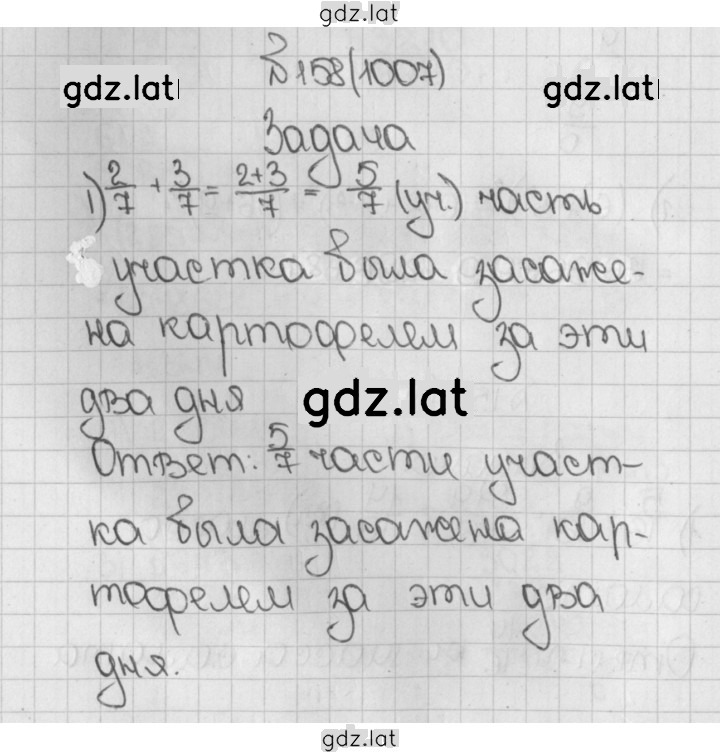 gdz.lat
№158(1007)
gdz.lat gdz.lat
Задача
1) 2/7 + 3/7 = 2+3/7 = 5/7 (уч.) часть
участка была засаже-
на картофелем за эти
два дня gdz.lat
Ответ: 5/7 части участ-
ка была засажена кар-
тофелем за эти два
дня.
gdz.lat